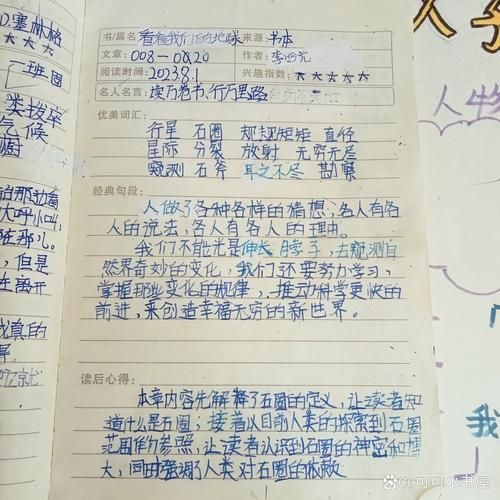 D.塞林格
★★★
班
类拨卒
气候
书/篇名 看看我们的地球 来源: 书本
文章: 008-0020 作者: 李四光
阅读时间: 2023.8.1 兴趣指数: ★★★★★
名人名言: 读万卷书、行万里路
优美词汇:
行星 石圈 规规矩矩 直径
星际 分裂 放射 无穷无尽
窥测 石斧 耳之不尽 勘察
经典句段:
人做了各种各样的猜想,各人有各
人的说法,各人有各人的理由。
我们不能光是伸长脖子,去窥测自
然界奇妙的变化,我们还要努力学习,
掌握那些变化的规律,推动科学更快的
前进,来创造幸福无穷的新世界。
读后心得:
本章内容先解释了石圈的定义,让读者知
道什么是石圈;接着以目前人类的探索到石圈
范围作为参照,让读者认识到石圈的神密和博
大,同时强调了人类对石圈的
大呼小叫,
在那儿。
,但是
在离开
我真的
人物
我
可可小书屋